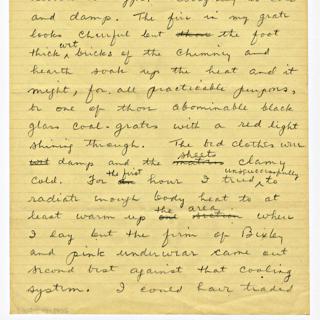 and damp. The fire in my grate
looks cheerful but the foot
thick wet bricks of the chimney and
hearth soak up the heat and it
might, for all practicable purposes,
be one of those abominable black
glass coal-grates with a red light
shining through. The bed clothes were
wet damp and the sheets clammy
cold. For the first hour I tried unsuccessfully to
radiate enough body heat to at
least warm up the area when
I lay but the firm of Bixby
and pink underwear came out
second best against that cooling
system. I could have traded